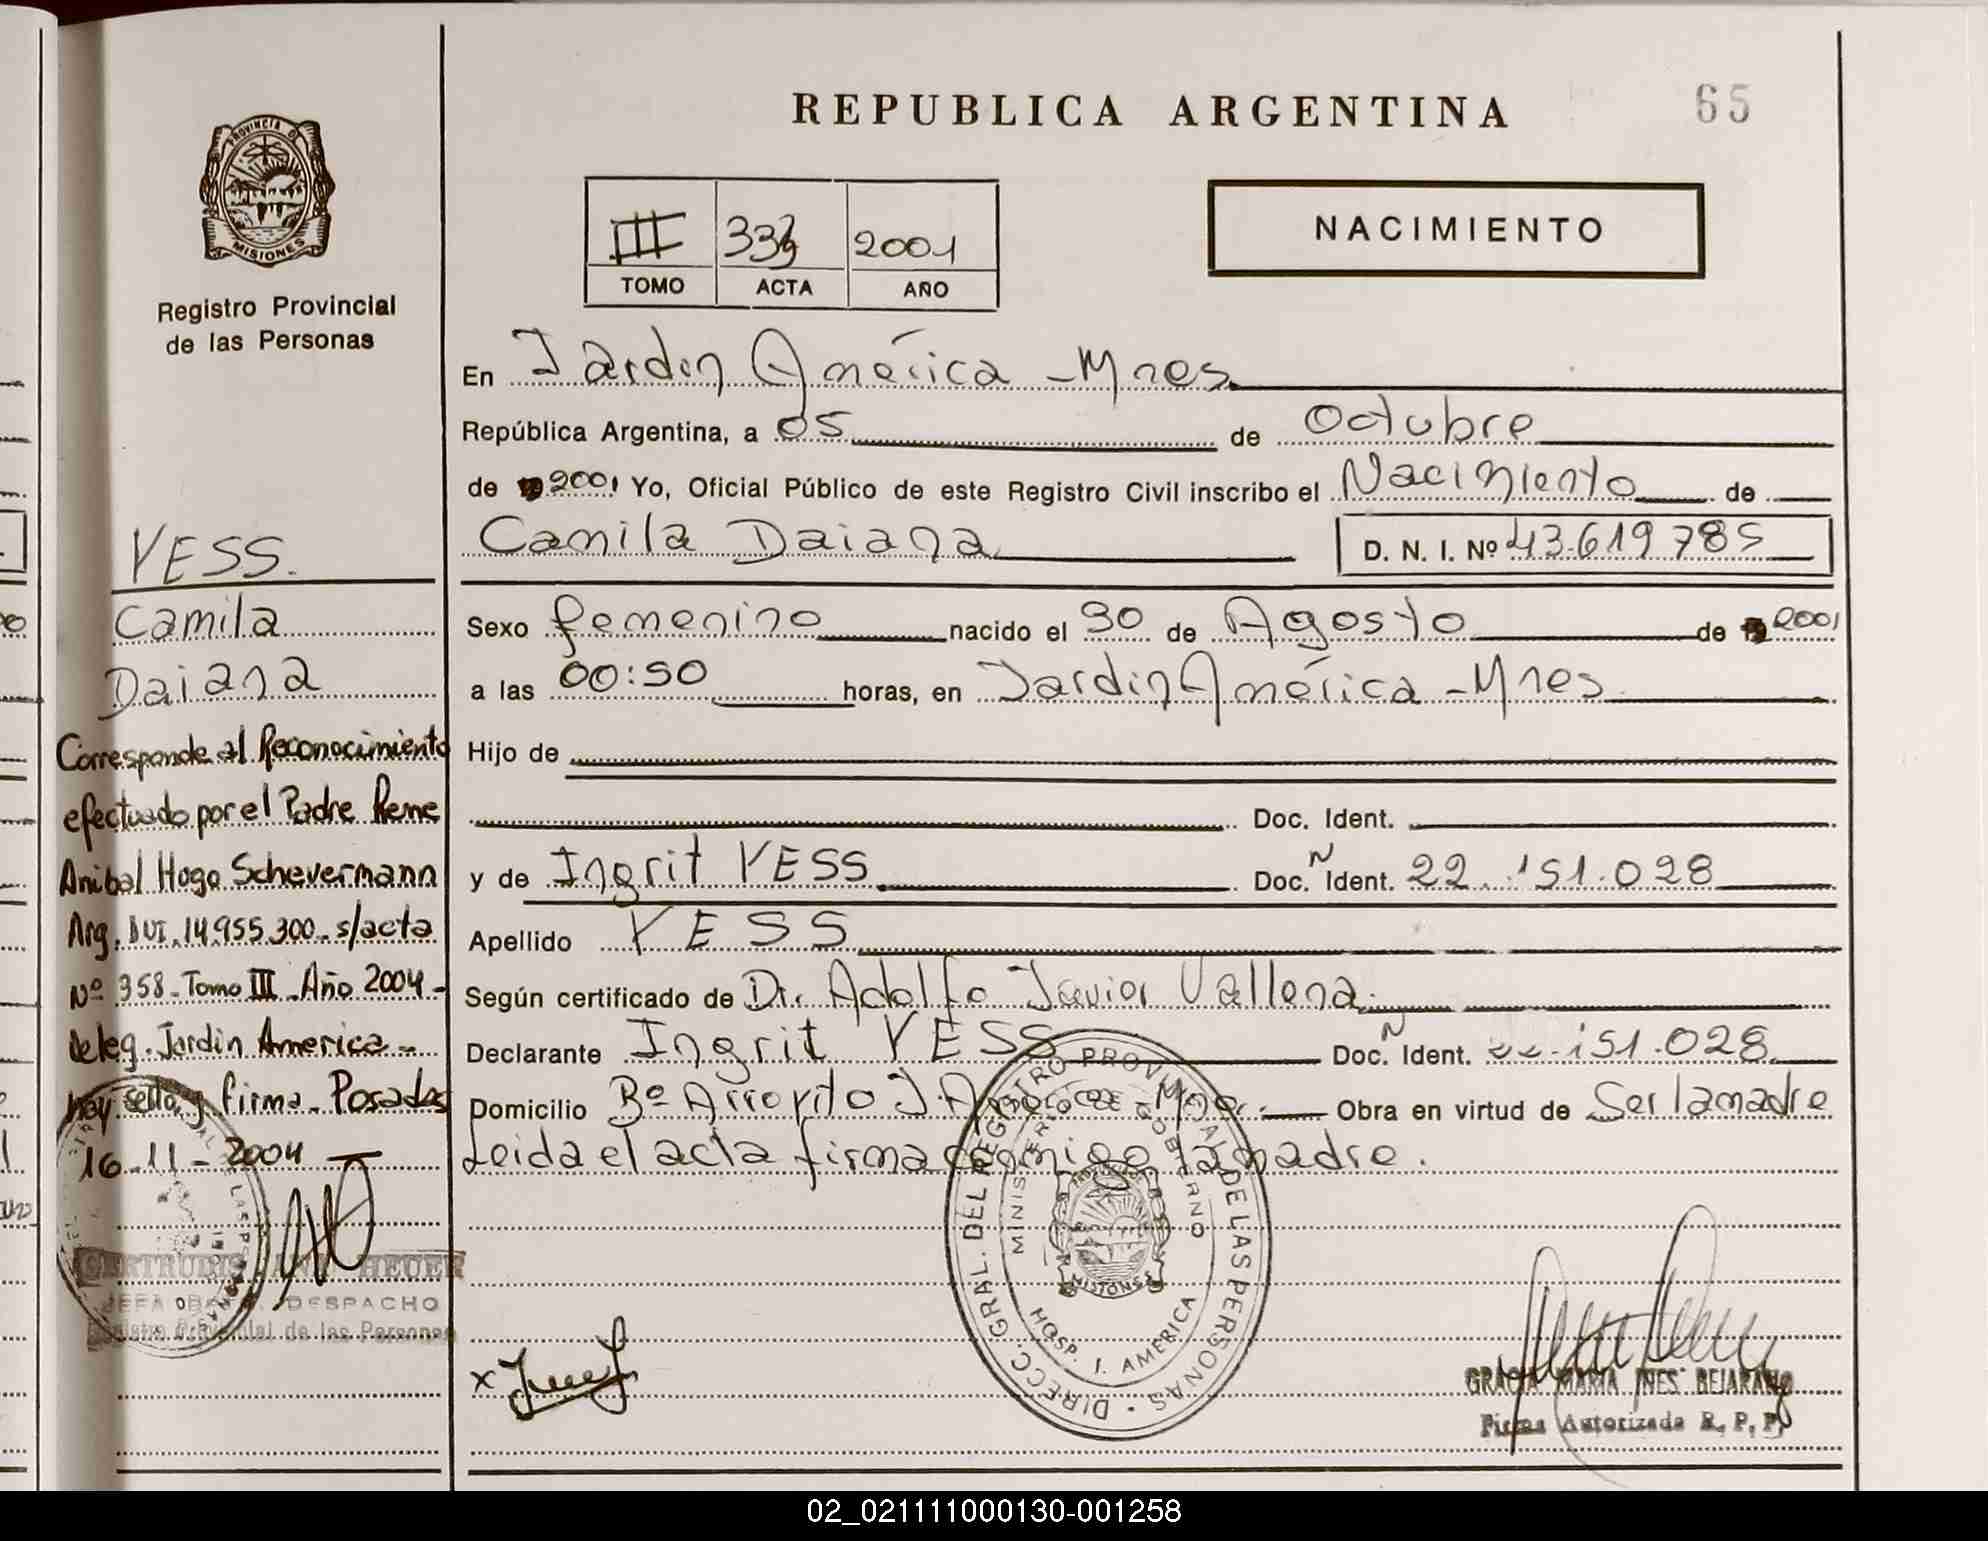 REPUBLICA ARGENTINA
65
PROVINCIA DE
MISIONES
Registro Provincial
de las Personas
III 333 2001
TOMO ACTA AÑO
NACIMIENTO
En Jardin América - Mnes
República Argentina, a 05 de Octubre
de 2001 Yo, Oficial Público de este Registro Civil inscribo el Nacimiento de
Camila Daiana D. N. I. Nº 43.619 785
Sexo femenino nacido el 30 de Agosto de 2001
a las 00:50 horas, en Jardin América - Mnes
Hijo de
Doc. Ident.
y de Ingrit YESS Doc. Ident. 22.151.028
Apellido YESS
Según certificado de Dr. Adolfo Javier Vallena
Declarante Ingrit YESS Doc. Ident. 22.151.028
Domicilio Bº Arroyito J. América - Mnes Obra en virtud de Ser la madre
Leida el acta firma conmigo la madre.
YESS.
Camila
Daiana
Corresponde al Reconocimiento
efectuado por el Padre Rene
Anibal Hogo Schevermann
Arg. DUI. 14.955.300 s/acta
Nº 358 - Tomo III - Año 2004 -
Deleg. Jardin America -
hay sello y firma - Posadas
16 - 11 - 2004
GERTRUDIS ANA HEUER
JEFA DESPACHO
Registro Provincial de las Personas
DIRECC. GRAL. DEL REGISTRO PROVINCIAL DE LAS PERSONAS
MINISTERIO DE GOBIERNO
MISIONES
HOSP. J. AMERICA
x
GRACIA MARIA INES BEJARANO
Firma Autorizada R. P. P.
02_021111000130-001258